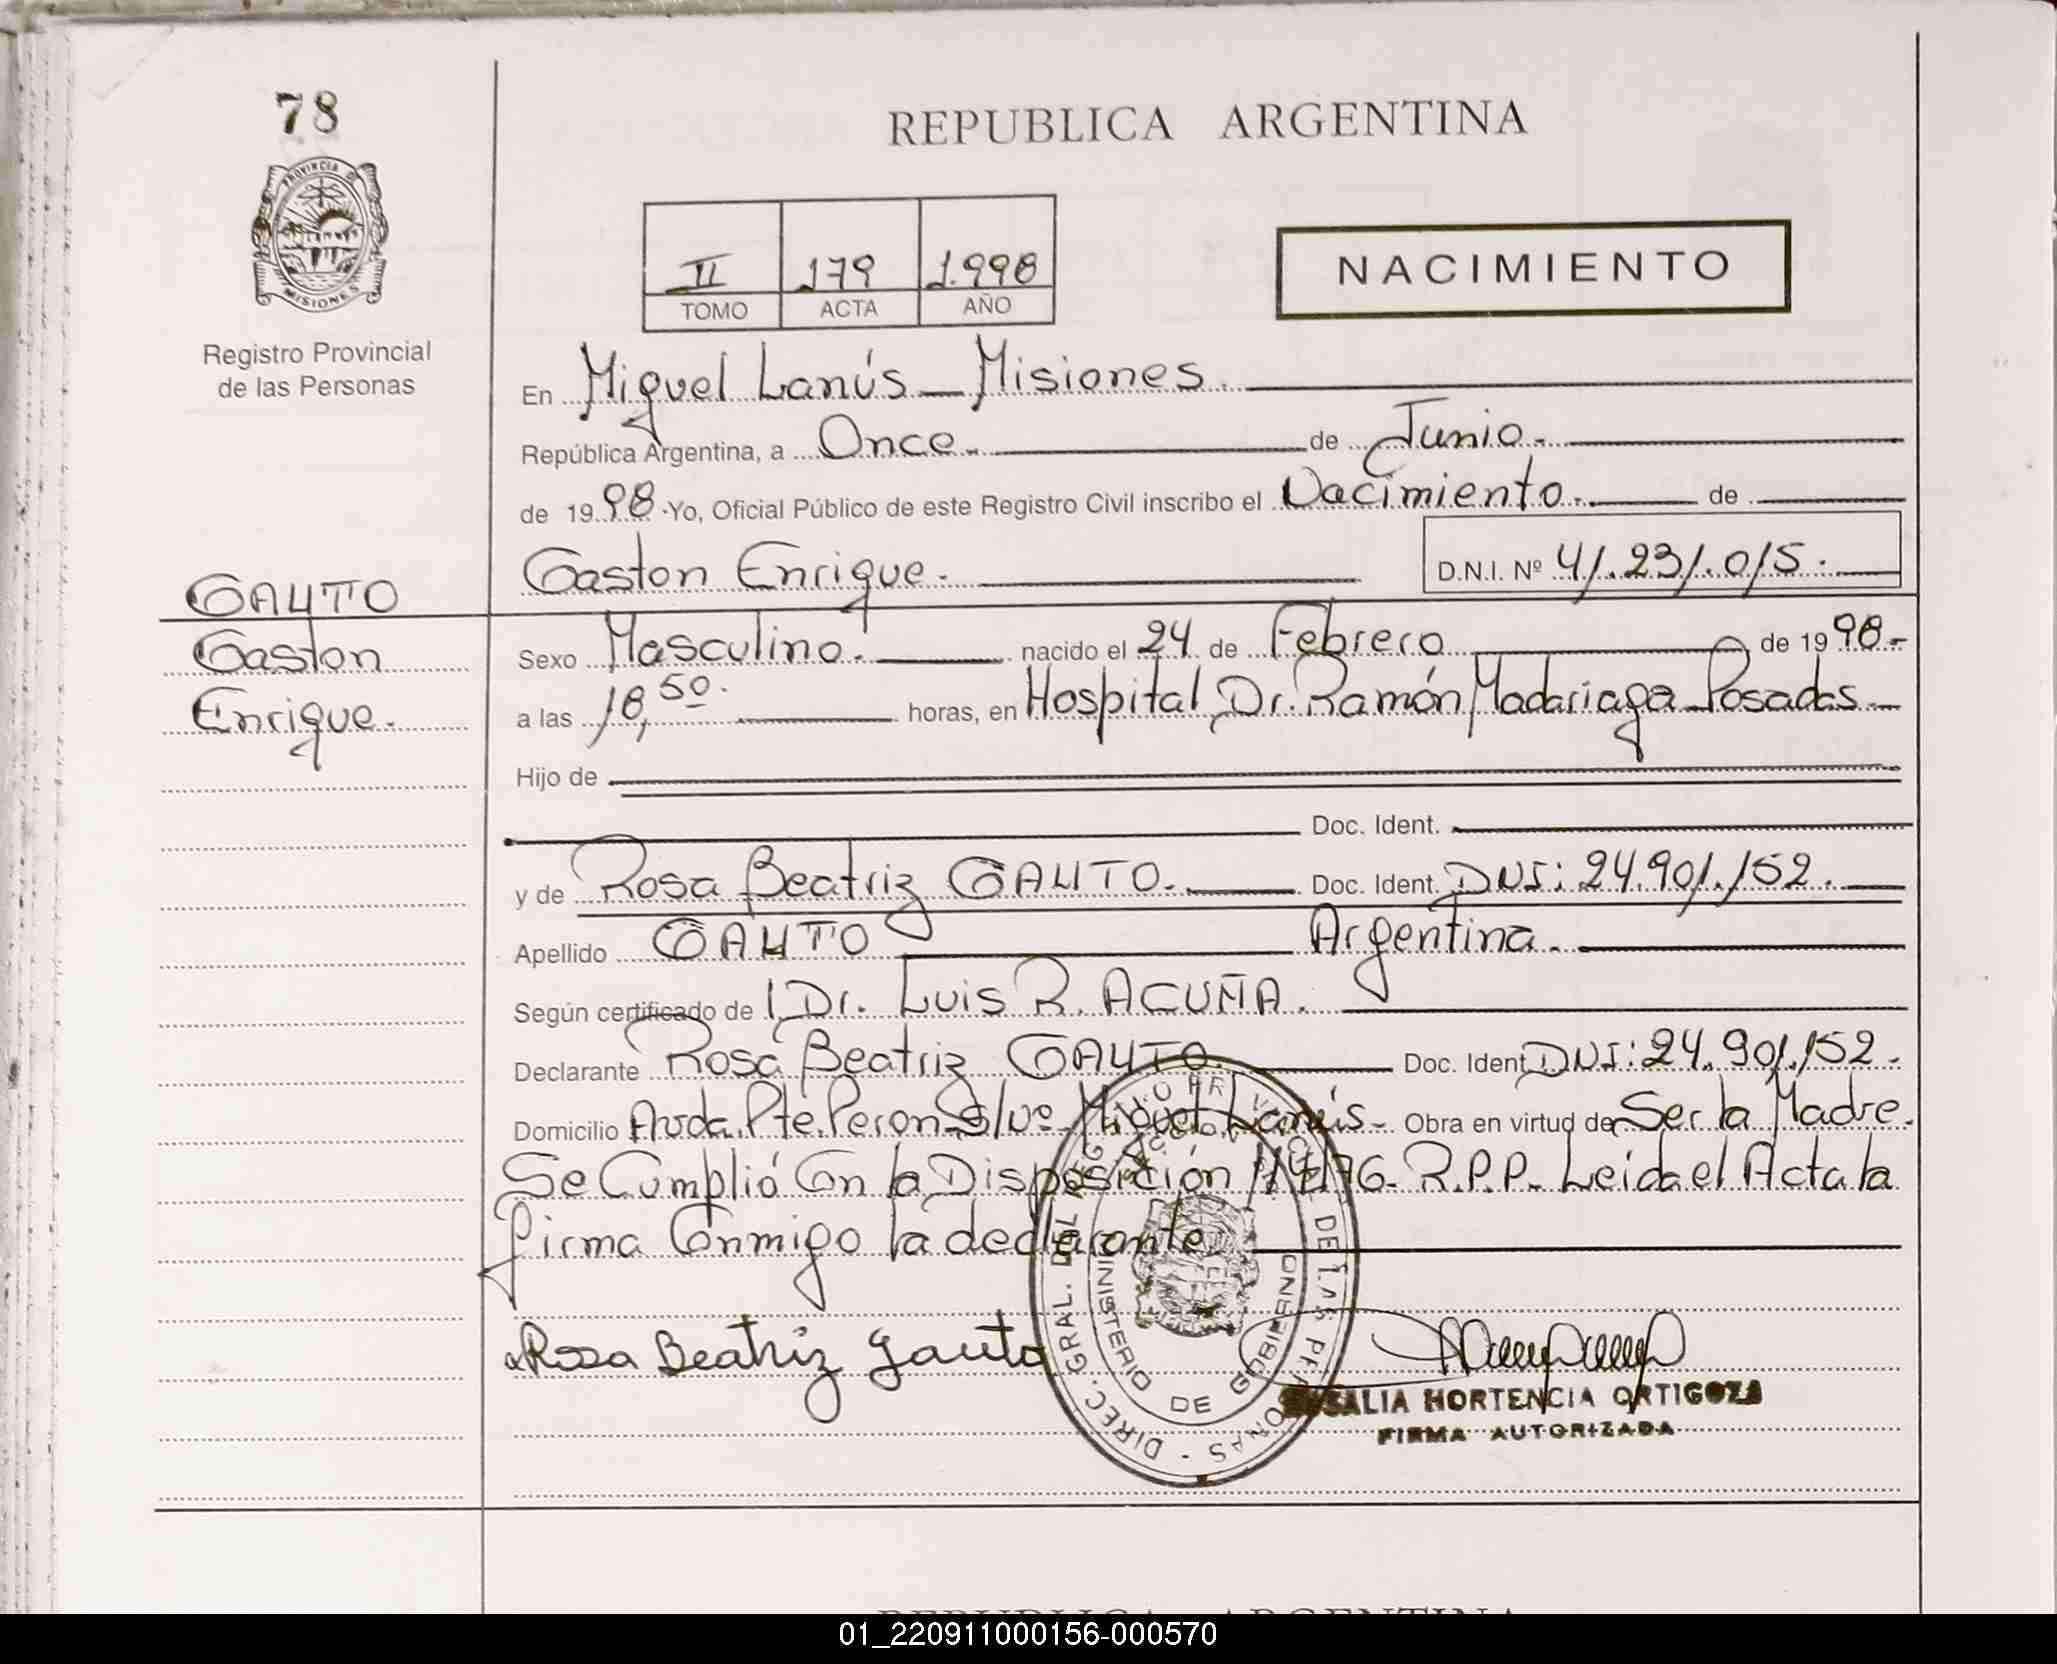 78
REPUBLICA ARGENTINA
PROVINCIA DE
MISIONES
Registro Provincial
de las Personas
II 179 1.998
TOMO ACTA AÑO
NACIMIENTO
En Miguel Lanús - Misiones.
República Argentina, a Once. de Junio.
de 1998 Yo, Oficial Público de este Registro Civil inscribo el Nacimiento. de
Gaston Enrique. D.N.I. Nº 41.231.015.
GAUTO
Gaston
Enrique.
Sexo Masculino. nacido el 24 de Febrero de 1998.-
a las 18,50. horas, en Hospital Dr. Ramón Madariaga Posadas
Hijo de
Doc. Ident.
y de Rosa Beatriz GAUTO. Doc. Ident. DNI: 24.901.152.
Apellido GAUTO Argentina.
Según certificado de Dr. Luis R. ACUÑA.
Declarante Rosa Beatriz GAUTO. Doc. Ident DNI: 24.901.152.
Domicilio Avda. Pte. Peron S/Nº Miguel Lanús- Obra en virtud de Ser la Madre.
Se Cumplió Con la Disposición 174/76- R.P.P. Leida el Acta la
firma Conmigo la declarante
Rosa Beatriz Gauto
DIREC. GRAL. DEL DE LAS PERSONAS
MINISTERIO DE GOBIERNO
ROSALIA HORTENCIA ORTIGOZA
FIRMA AUTORIZADA
REPUBLICA ARGENTINA
01_220911000156-000570